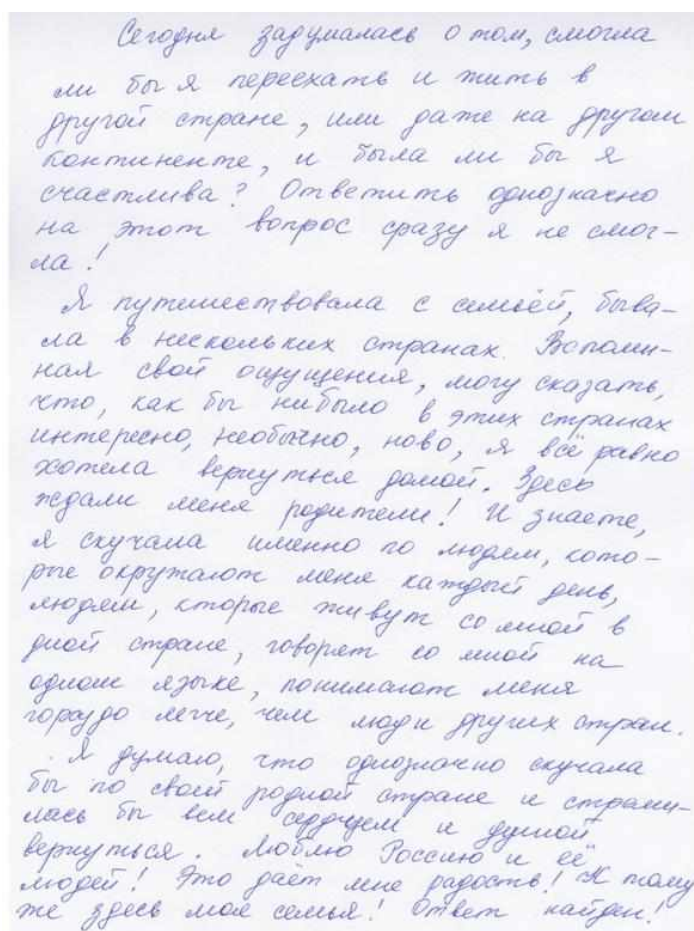 Сегодня задумалась о том, смогла
ли бы я переехать и жить в
другой стране, или даже на другом
континенте, и была ли бы я
счастлива? Ответить однозначно
на этот вопрос сразу я не смог-
ла!
Я путешествовала с семьёй, быва-
ла в нескольких странах. Вспоми-
ная свой ощущения, могу сказать,
что, как бы нибыло в этих странах
интересно, необычно, ново, я всё равно
хотела вернуться домой. Здесь
ждали меня родители! И знаете,
я скучала именно по людям, кото-
рые окружают меня каждый день,
людям, кторые живут со мной в
дной стране, говорят со мной на
одном языке, понимают меня
гораздо легче, чем люди других стран.
Я думаю, что однозначно скучала
бы по своей родной стране и стреми-
лась бы всем сердцем и душой
вернуться. Люблю Россию и её
людей! Это даёт мне радость! К тому
же здесь моя семья! Ответ найден!